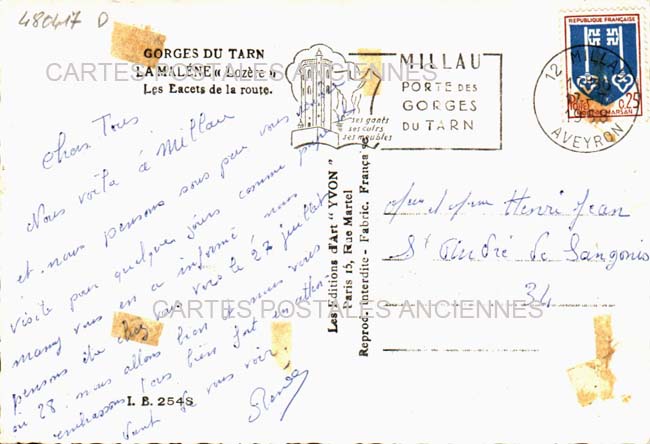 480417 D
GORGES DU TARN
LA MALÈNE « Lozère »
Les Eacets de la route.
CARTES POSTALES ANCIENNES
MILLAU
PORTE DES
GORGES
DU TARN
ses gants
ses cuirs
ses meubles
REPUBLIQUE FRANÇAISE
0,25
MONT-DE-MARSAN
12 MILLAU
AVEYRON
Chers Tous
Nous voilà à Millau
et nous pensons sous peu vous rendre
visite pour quelques jours comme papa et
mamy vous en a informé, nous
pensons être chez vous vers le 27 juillet
ou 28. nous allons bien et nous vous
embrassons tous bien fort en attendant
de vous voir.
Les Editions d'Art "YVON"
Paris 15, Rue Martel
Reproduction interdite - Fabric. Française
Mr et Mme Henri Jean
St André de Sangonis
34
CARTES POSTALES ANCIENNES
I. B. 254S